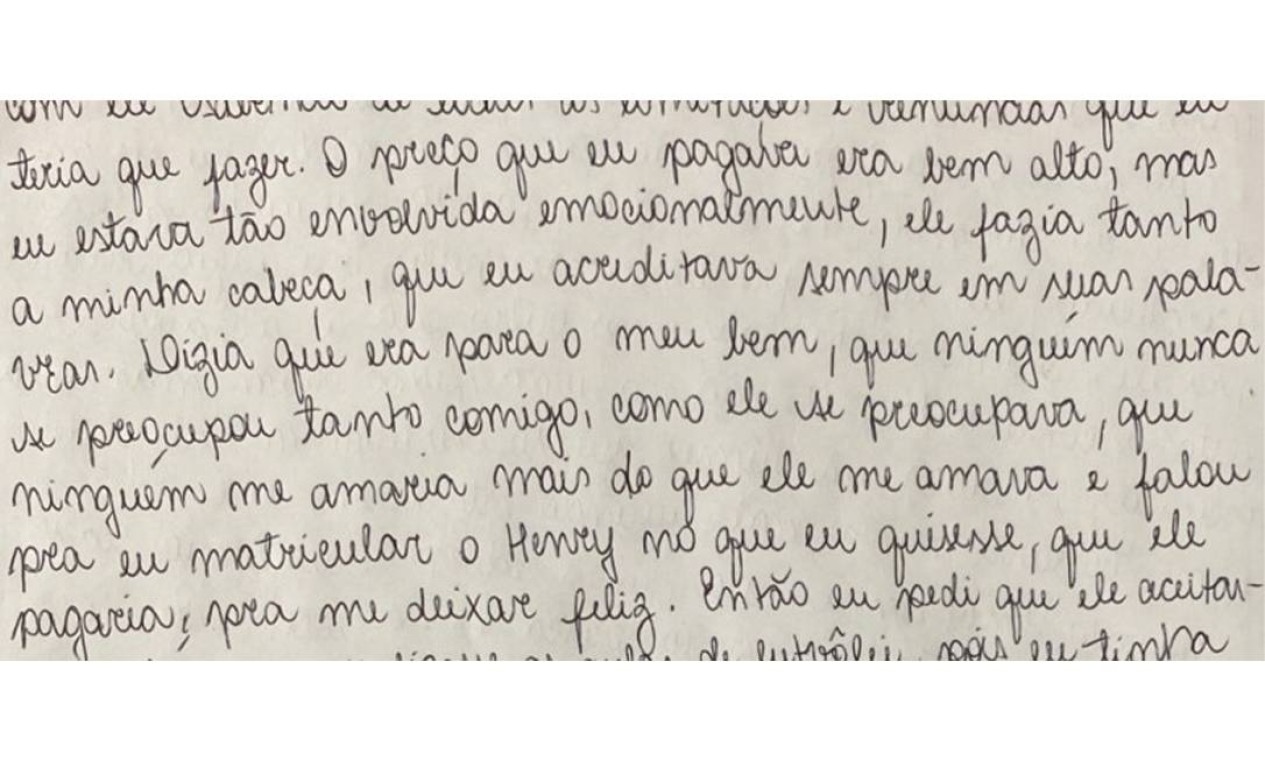 teria que fazer. O preço que eu pagava era bem alto, mas
eu estava tão envolvida emocionalmente, ele fazia tanto
a minha cabeça, que eu acreditava sempre em suas pala-
vras. Dizia que era para o meu bem, que ninguém nunca
se preocupou tanto comigo, como ele se preocupava, que
ninguém me amaria mais do que ele me amava e falou
pra eu matricular o Henry no que eu quisesse, que ele
pagaria, pra me deixar feliz. Então eu pedi que ele aceitas-
pois eu tinha